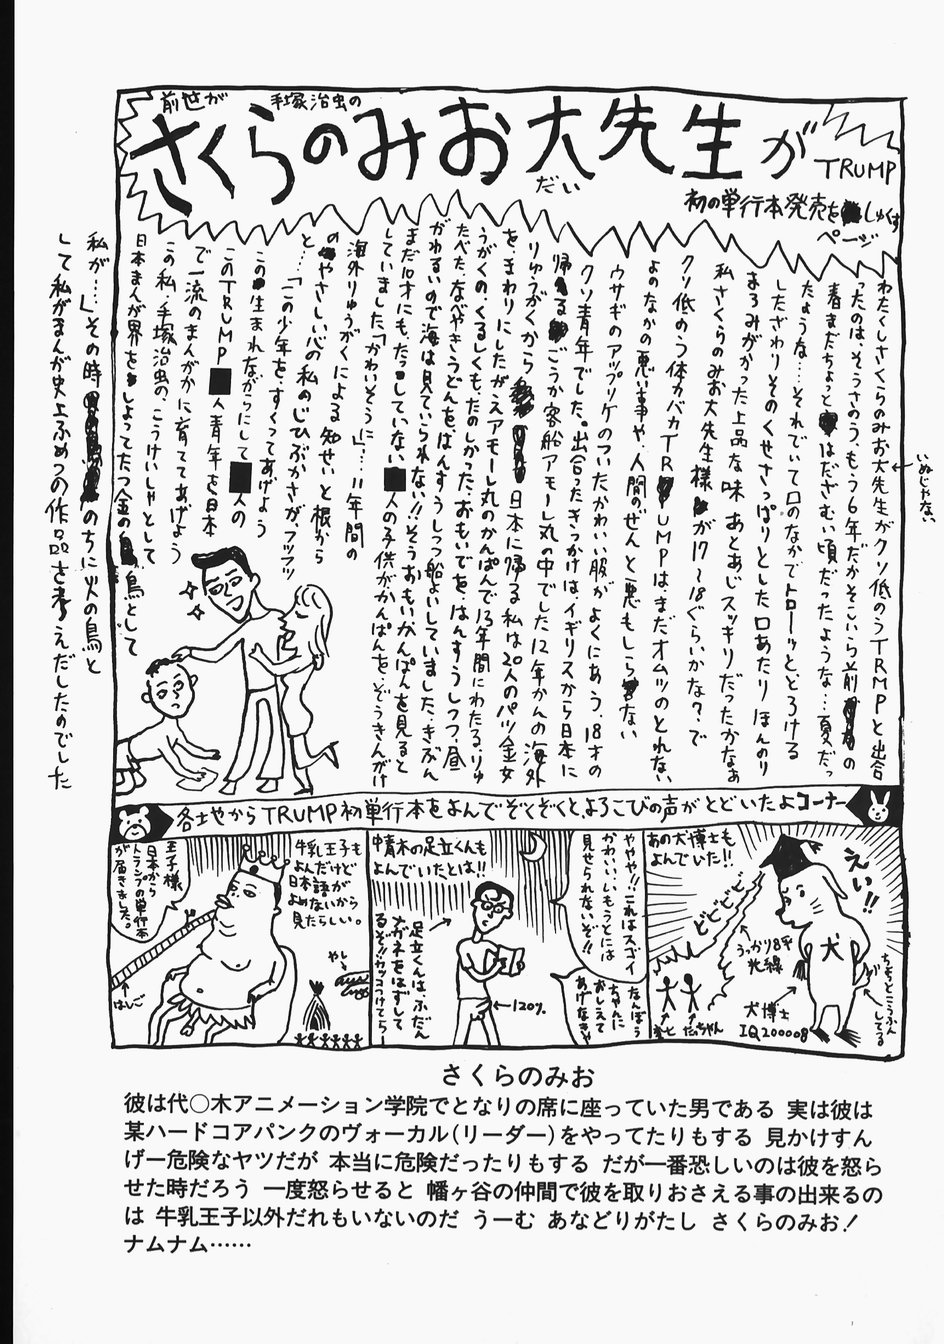 前世が 手塚治虫の
さくらのみお大先生が
だい
TRUMP
初の単行本発売をしゅくす
ページ
わたくしさくらのみお大先生がクソ低のうTRUMPと出合
いぬじゃない
ったのは、そうさのう、もう6年だかそこいら前の
春まだちょっとはださむい頃だったような…夏だっ
たような…それでいて口のなかでトローッととろける
したざわりそのくせさっぱりとした口あたり ほんのり
まろみがかった上品な味 あとあじスッキリだったかなぁ
私さくらのみお大先生様が17〜18ぐらいかな?で
クソ低のう体力バカTRUMPは、まだオムツのとれない
よのなかの悪い事や、人間のぜんと悪もしらない
ウサギのアップリケのついたかわいい服がよくにあう、18才の
クソ青年でした。出合ったきっかけは、イギリスから日本に
帰るごうか客船アモーレ丸の中でした 12年かんの海外
りゅうがくから日本に帰る私は20人のパツ金女
をまわりにしたがえアモーレ丸のかんぱんで13年間にわたる、りゅ
うがくの、くるしくも、たのしかった、おもいでを、はんすうしつつ、昼
たべた、なべやきうどんを、はんすうしつつ船よいしていました、きぶん
がわるいので海は見ていられない!!そうおもいかんぱんを見ると
まだ10才にもたっしていない■人の子供がかんぱんを、ぞうきんがけ
していました、「かわいそうに」…11年間の
海外りゅうがくによる知せいと根から
のやさしい心の私のじひぶかさが、フツフツ
と…「この少年を、すくってあげよう
この生まれながらにして■人の
このTRUMP■人青年を日本
で一流のまんがかに育ててあげよう
この私、手塚治虫の、こうけいしゃとして
日本まんが界をしょってたつ金の鳥として
私が…」その時のちに火の鳥と
して私がまんが史上ふめつの作品を考えだしたのでした
各土地からTRUMP初単行本をよんでぞくぞくと、よろこびの声がとどいたよコーナー
あの犬博士も
よんでいた!!
えい!!
どどどど
うっかり8平
光線
犬
犬博士
IQ200008
ちょっとこうふん
してる
だいちゃん
ややや!!これはスゴイ
かわいい、いもうとには
見せられないぞ!!
なんぼう
ちゃんに
おしえて
あげなきゃ
中青木の足立くんも
よんでいたとは!!
足立くんは、ふだん
メガネをはずして
るぞ!!カッコつけてら!
120%
牛乳王子も
よんだけど
日本語が
よめないから
見たらしい。
王子様
日本から
トランプの単行本
が届きました。
はしご
やし
さくらのみお
彼は代○木アニメーション学院でとなりの席に座っていた男である 実は彼は
某ハードコアパンクのヴォーカル(リーダー)をやってたりもする 見かけすん
げー危険なヤツだが 本当に危険だったりもする だが一番恐しいのは彼を怒ら
せた時だろう 一度怒らせると 幡ヶ谷の仲間で彼を取りおさえる事の出来るの
は 牛乳王子以外だれもいないのだ うーむ あなどりがたし さくらのみお!
ナムナム……